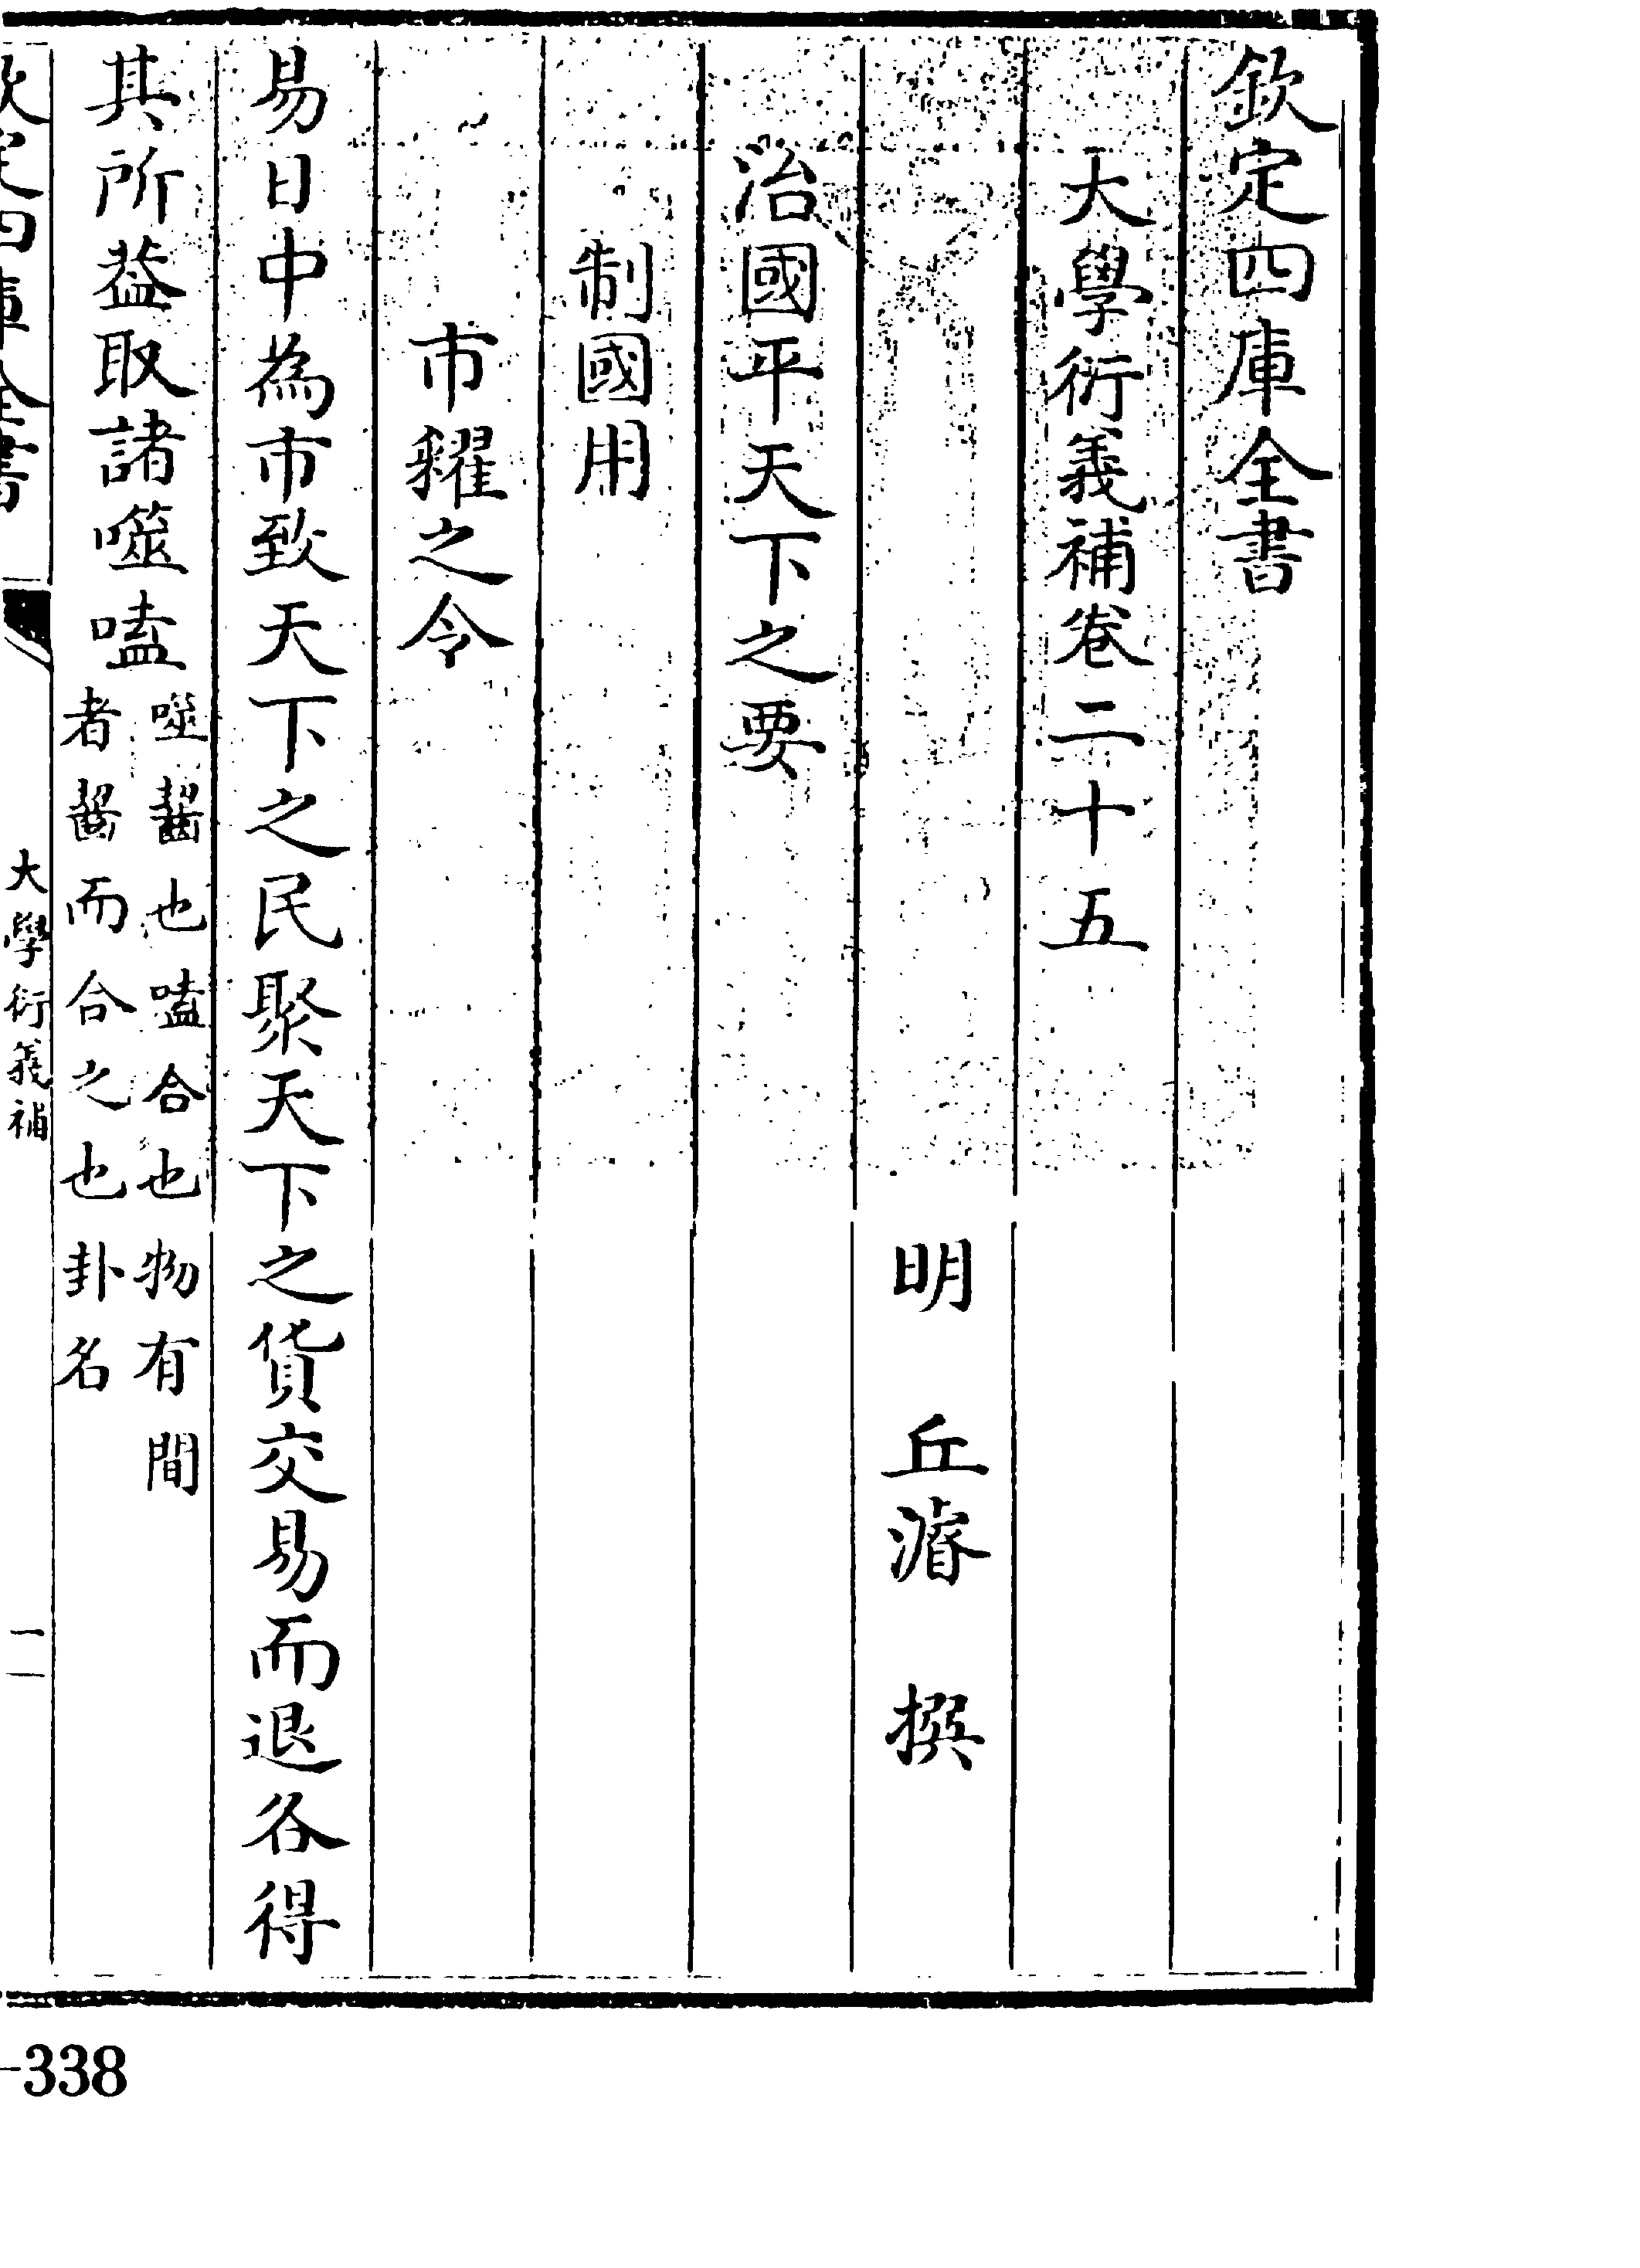 欽定四庫全書
大學衍義補卷二十五
明　丘濬　撰
治國平天下之要
制國用
市糴之令
易日中為市致天下之民聚天下之貨交易而退各得
其所葢取諸噬嗑
噬齧也嗑合也物有間
者齧而合之也卦名
欽定四庫全書
大學衍義補
-338